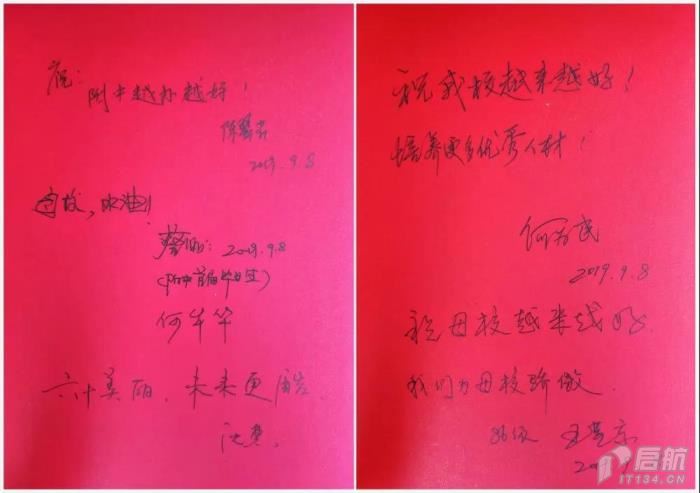 祝:
附中越办越好!
2019.9.8
母校,加油!!
蔡 : 2019.9.8
(附中首届毕业生)
何 华
六十美丽,未来更
祝我校越来越好!
培养更多优秀人材!
何 民
2019.9.8
祝母校越来越好.
我们为母校骄傲.
级 王 京
启航
IT134.CN